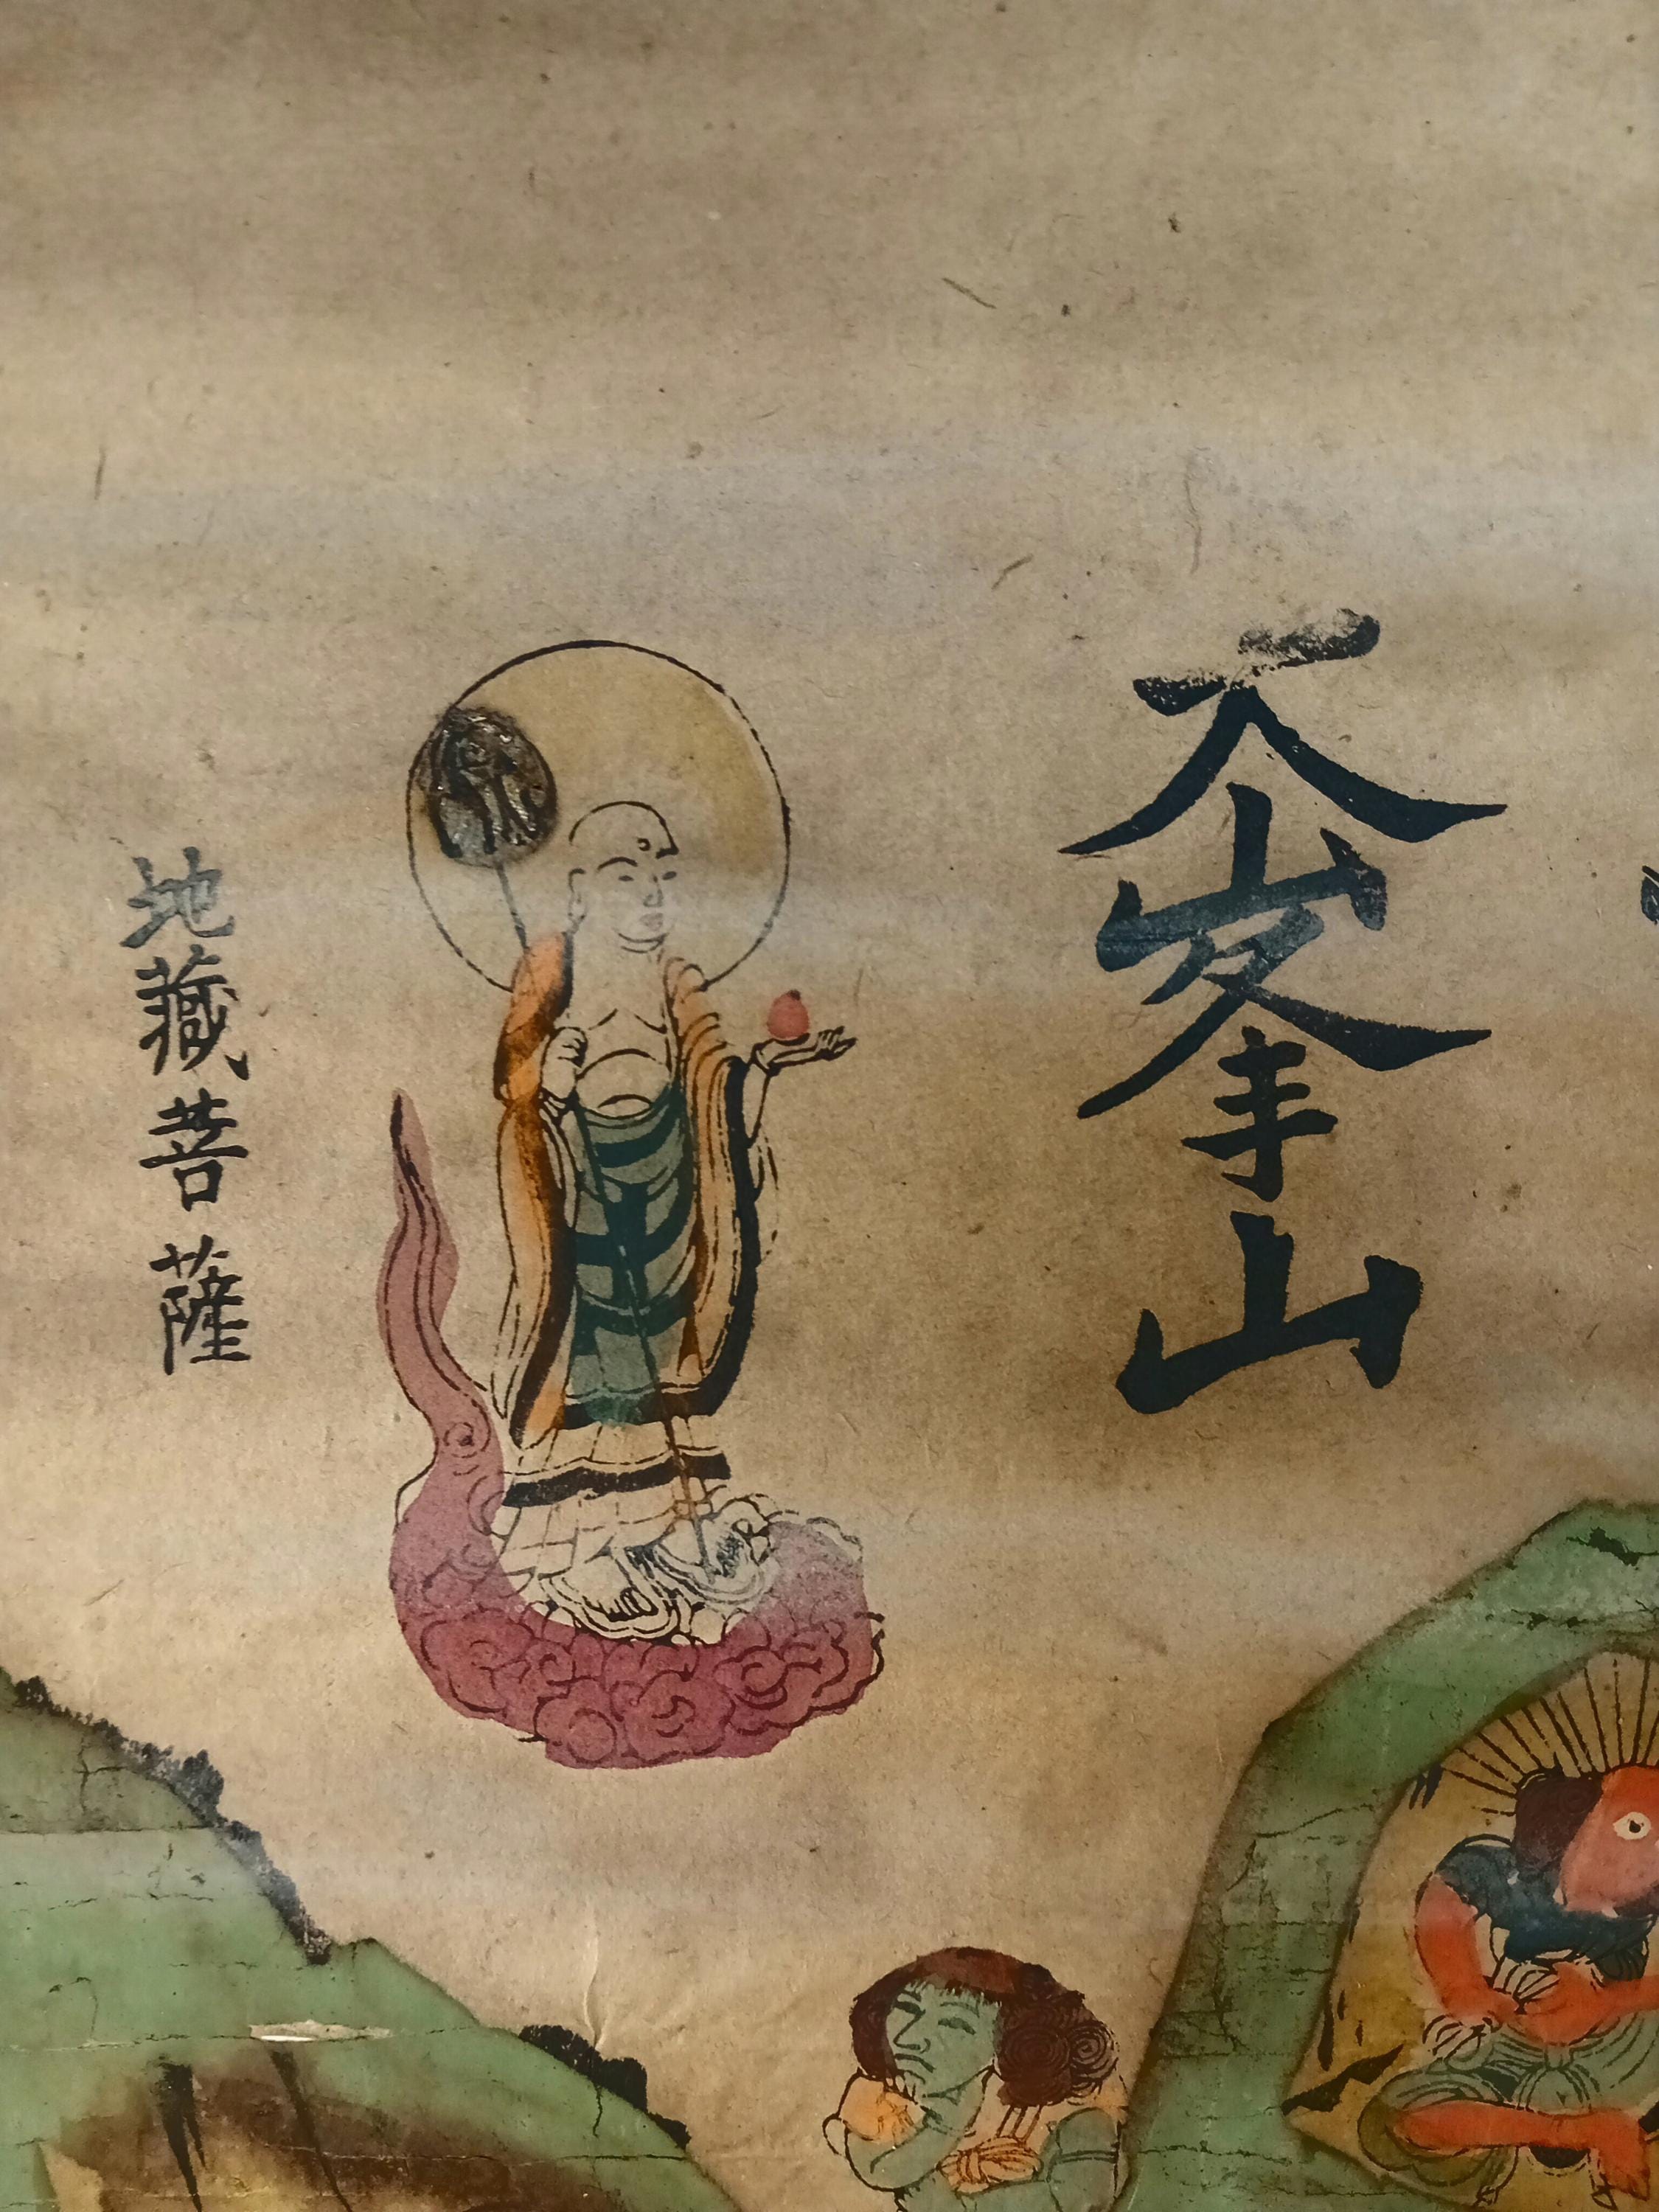 大峯山
地藏菩薩